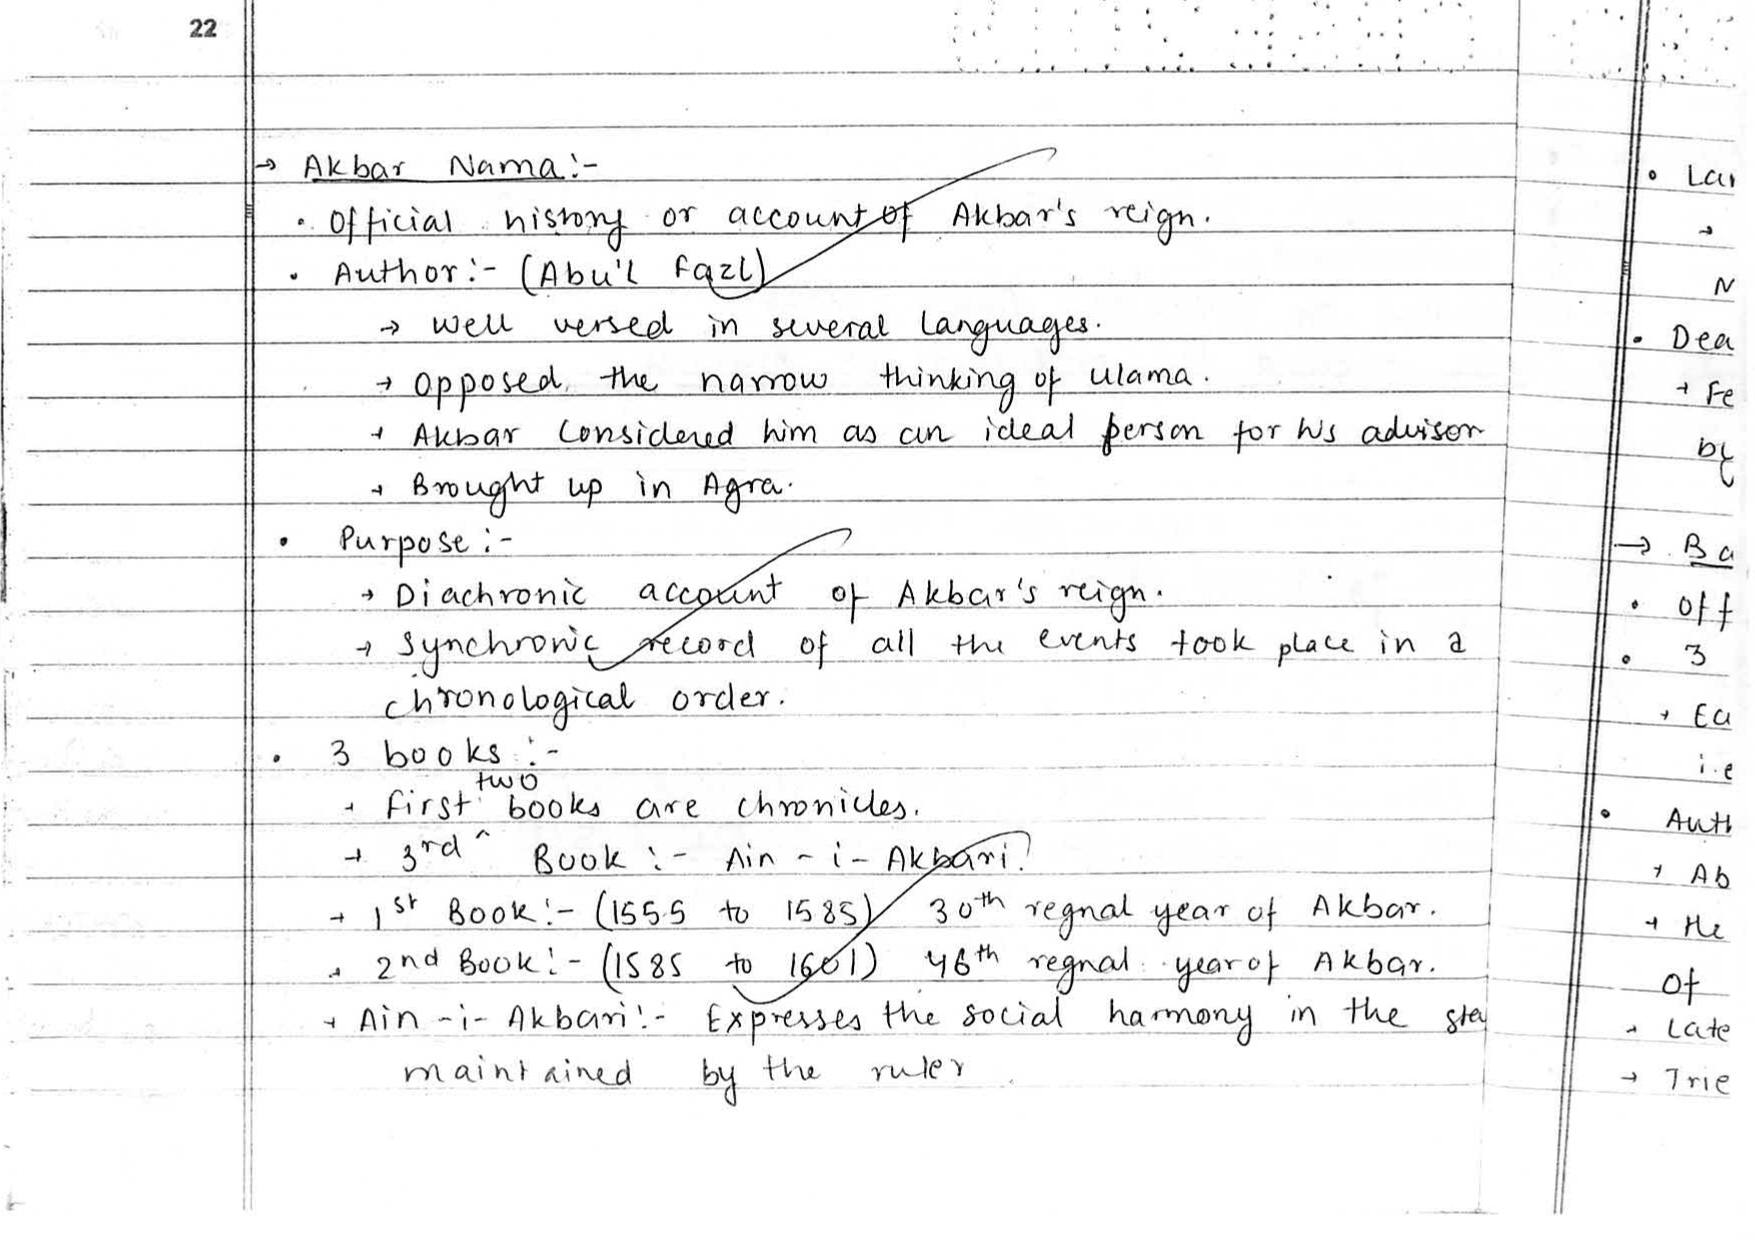 22
→ Akbar Nama:-
• Official history or account of Akbar's reign.
• Author:- (Abu'l Fazl)
→ Well versed in several languages.
→ Opposed the narrow thinking of ulama.
→ Akbar Considered him as an ideal person for his advisor
→ Brought up in Agra.
• Purpose:-
→ Diachronic account of Akbar's reign.
→ Synchronic record of all the events took place in a
chronological order.
• 3 books:-
two
→ First ^ books are chronicles.
→ 3rd Book:- Ain-i-Akbari.
→ 1st Book:- (1555 to 1585) 30th regnal year of Akbar.
→ 2nd Book:- (1585 to 1601) 46th regnal year of Akbar.
→ Ain-i-Akbari:- Expresses the social harmony in the
maintained by the ruler
• Lar
→
N
• Dea
→ Fe
by
→ Ba
• Off
• 3
→ Ea
i.e
• Auth
→ Ab
→ He
of
→ Late
→ Trie